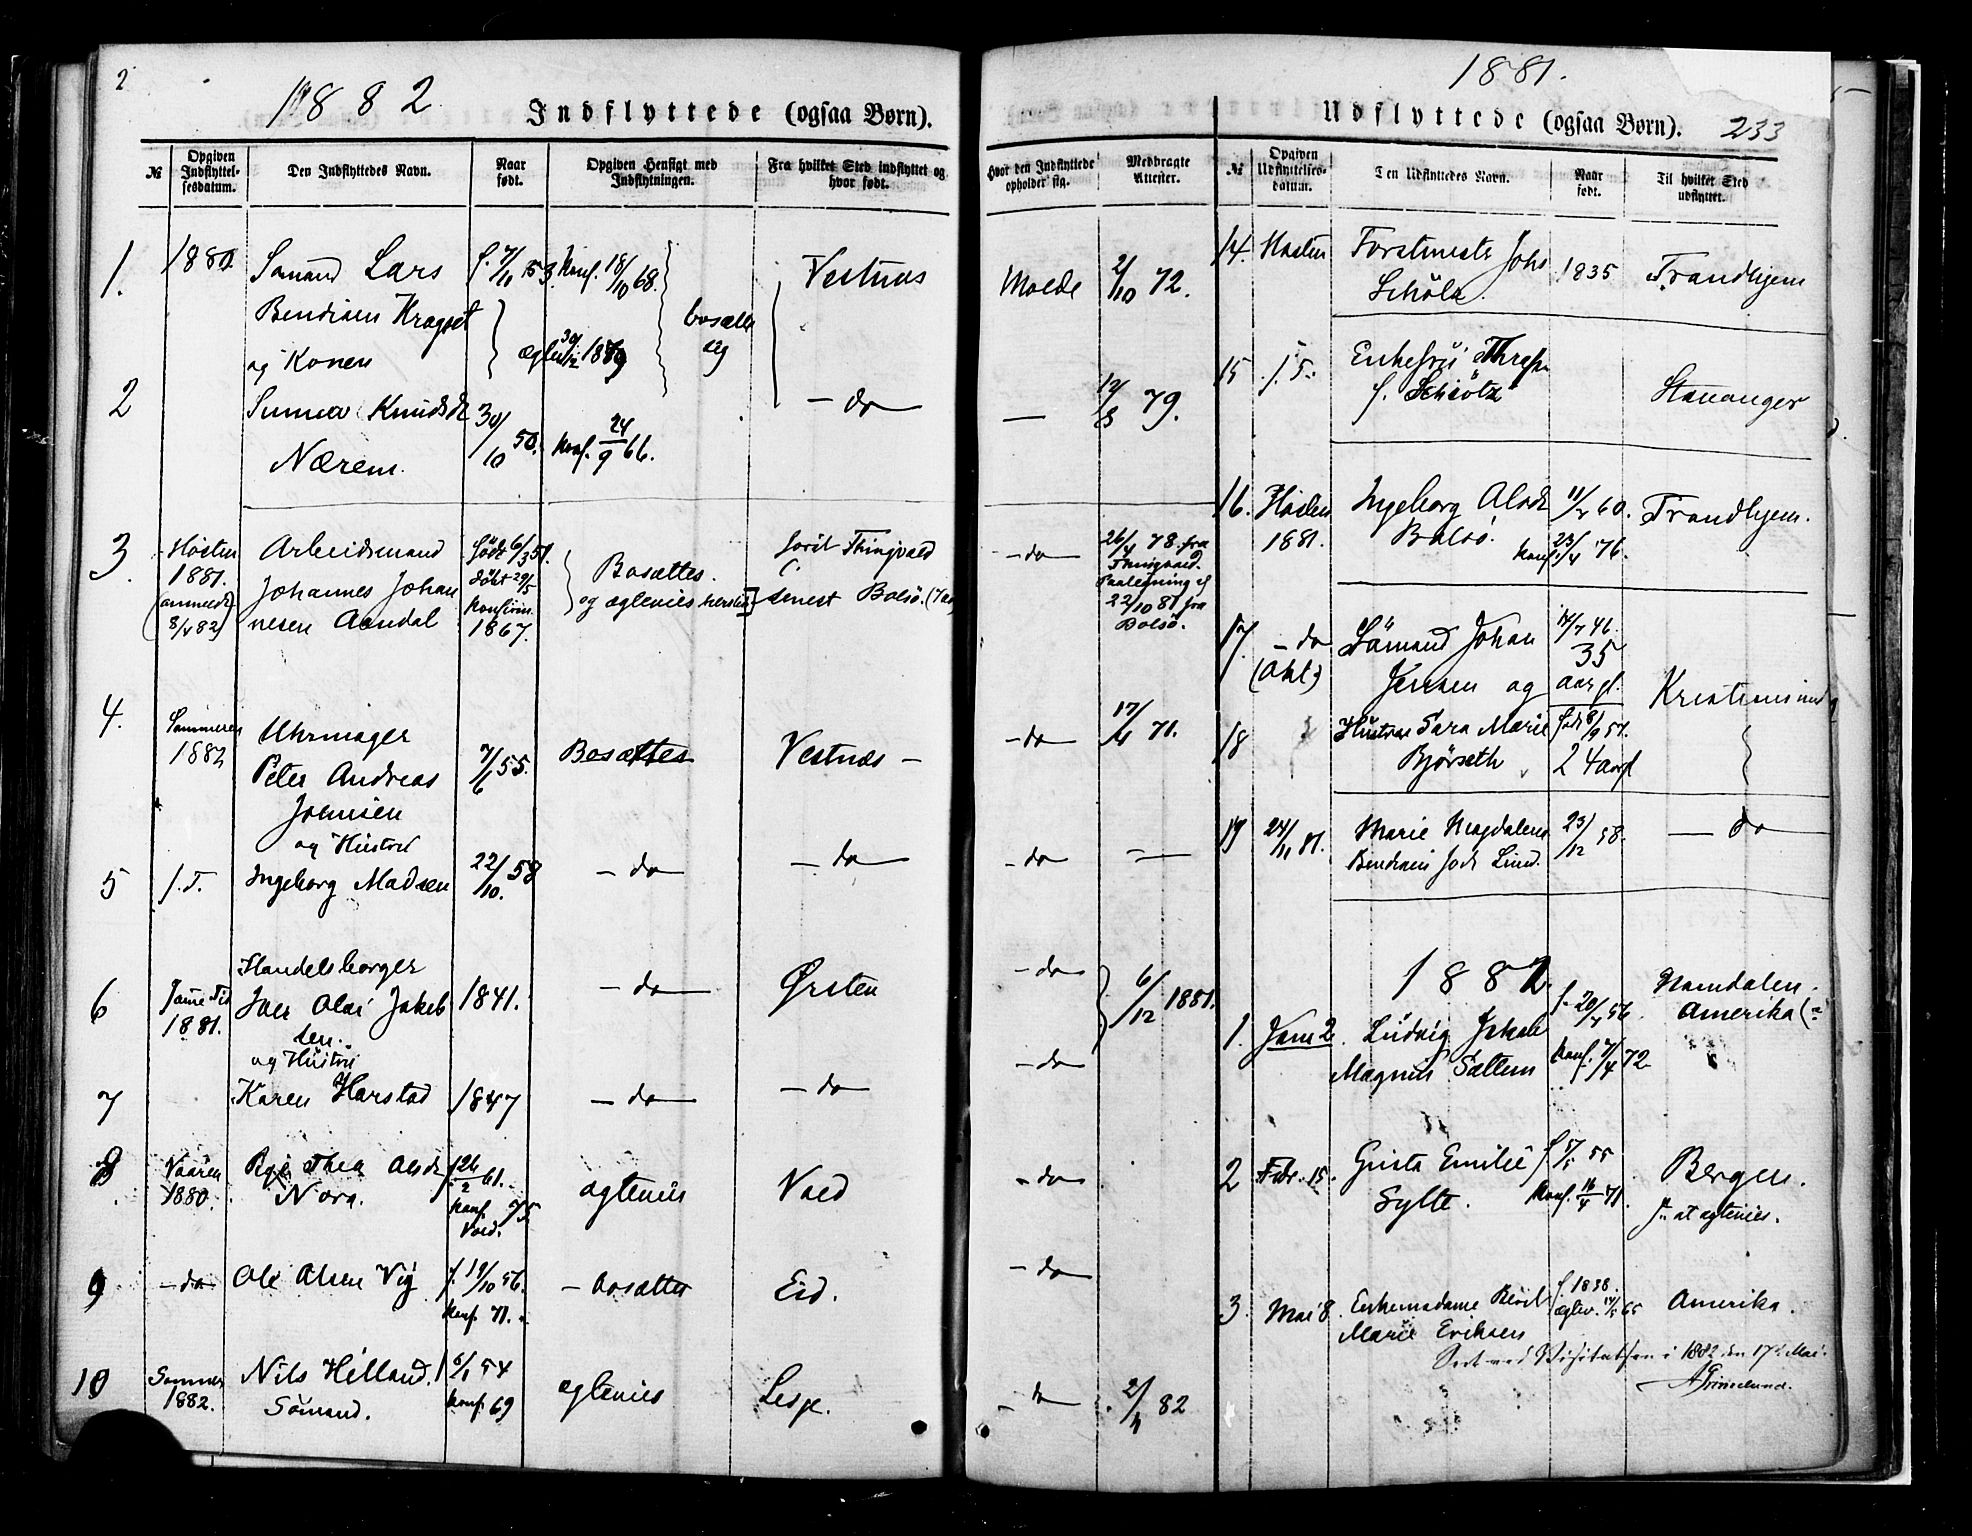 2
1882
Indflyttede (ogsaa Børn).
№
Opgiven Indflyttelsesdatum.
Den Indflyttedes Navn.
Naar født.
Opgiven Hensigt med Indflytningen.
Fra hvilket Sted indflyttet og hvor født.
Hvor den Indflyttede opholder sig.
Medbragte Attester.
1. 1880 Sømand Lars f. 7/11 53. Konf. 18/10 68. Vestnæs Molde 2/10 72.
Bendixen Kragset bosætte
og Konen ægtev. 30/12 1879 sig
2 Knudsdr 30/10 50. — do — — 12/8 79.
Nærem. Konf. 24/9 66.
3. Høsten Arbeidsmand født 6/3 51. Bosættes. Thingvold — do — 26/4 78. fra
1881. Johannes Johan døbt 29/5 og ægtevies herste senest Bolsø. Thingvold.
(anmeldt nesen Aandal Konfirm. 22/10 81 fra
8/4 82) 1867. Bolsø.
4. Sommeren Uhrmager
1882 Peter Andreas 7/6 55. Bosættes Vestnæs — — do — 17/4 71.
Johnsen
og Hustru
5 s.T. Ingeborg Madsen 22/10. 58 — do — — do — — do — —
6 Handelsborger
1881. Olai Jakob 1841. — do — Ørsten — do — 6/12 1881.
sen.
og Hustru
7 Karen Harstad 1847 — do — — do — — do —
8 Vaaren Thea Olsdr f. 26/2 61. ægtevies Vold — do —
1880. Nora. Konf. 75
Vold.
9 — do — Ole Olsen Vig f. 19/10 56. — bosætter Eid. — do —
Konf. 71.
10 Sommer Nils Hilland. 54 ægtevies Lesje. — do — 82
1882. Sømand. Konf. 69
1881.
Udflyttede (ogsaa Børn). 233
№
Opgiven Udflyttelsesdatum.
Den Udflyttedes Navn.
Naar født.
Til hvilket Sted udflyttet.
14. Høsten Forstmester Johs 1835 Trondhjem
Schötz.
15 Enkefru Stavanger
f. Schiötz
16. Høsten Ingeborg Olsdr 11/2 60. Trondhjem.
1881. Bolsø. Konf. 23/4 76.
17. — do Sømand Johan 14/7 46.
(Okt.) Jensen og 35
aar gl. Kristiansund
18 Hustru Sara Marie født 8/9 57.
Bjørseth 24 aar gl
19 24/11 81. Marie Magdalene 23/12 58. — do
født Lind.
1882.
1. Jan 2. Ludvig Jakob f. 20/4 56. Namdalen.
Magnus Saltem Konf. 7/4 72. Amerika (?)
2 Febr. 15. Gusta Emilie f. 5/5 55 Bergen.
Sylte. Konf. 16/4 71. f. at ægtevies.
3. Mai 8. Enkemadame Berit f. 1838. Amerika.
Marie Eriksen ægtev. 65
Seet ved Visitatsen i 1882 den 17de Mai.
AGrimelund.